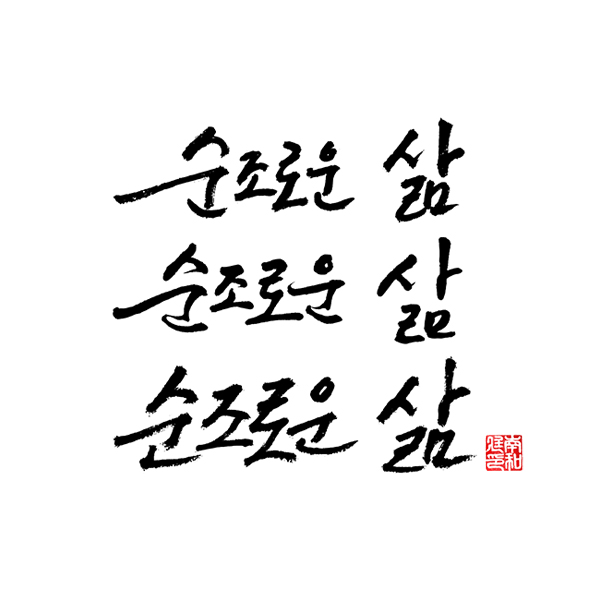 순조로운 삶
순조로운 삶
순조로운 삶